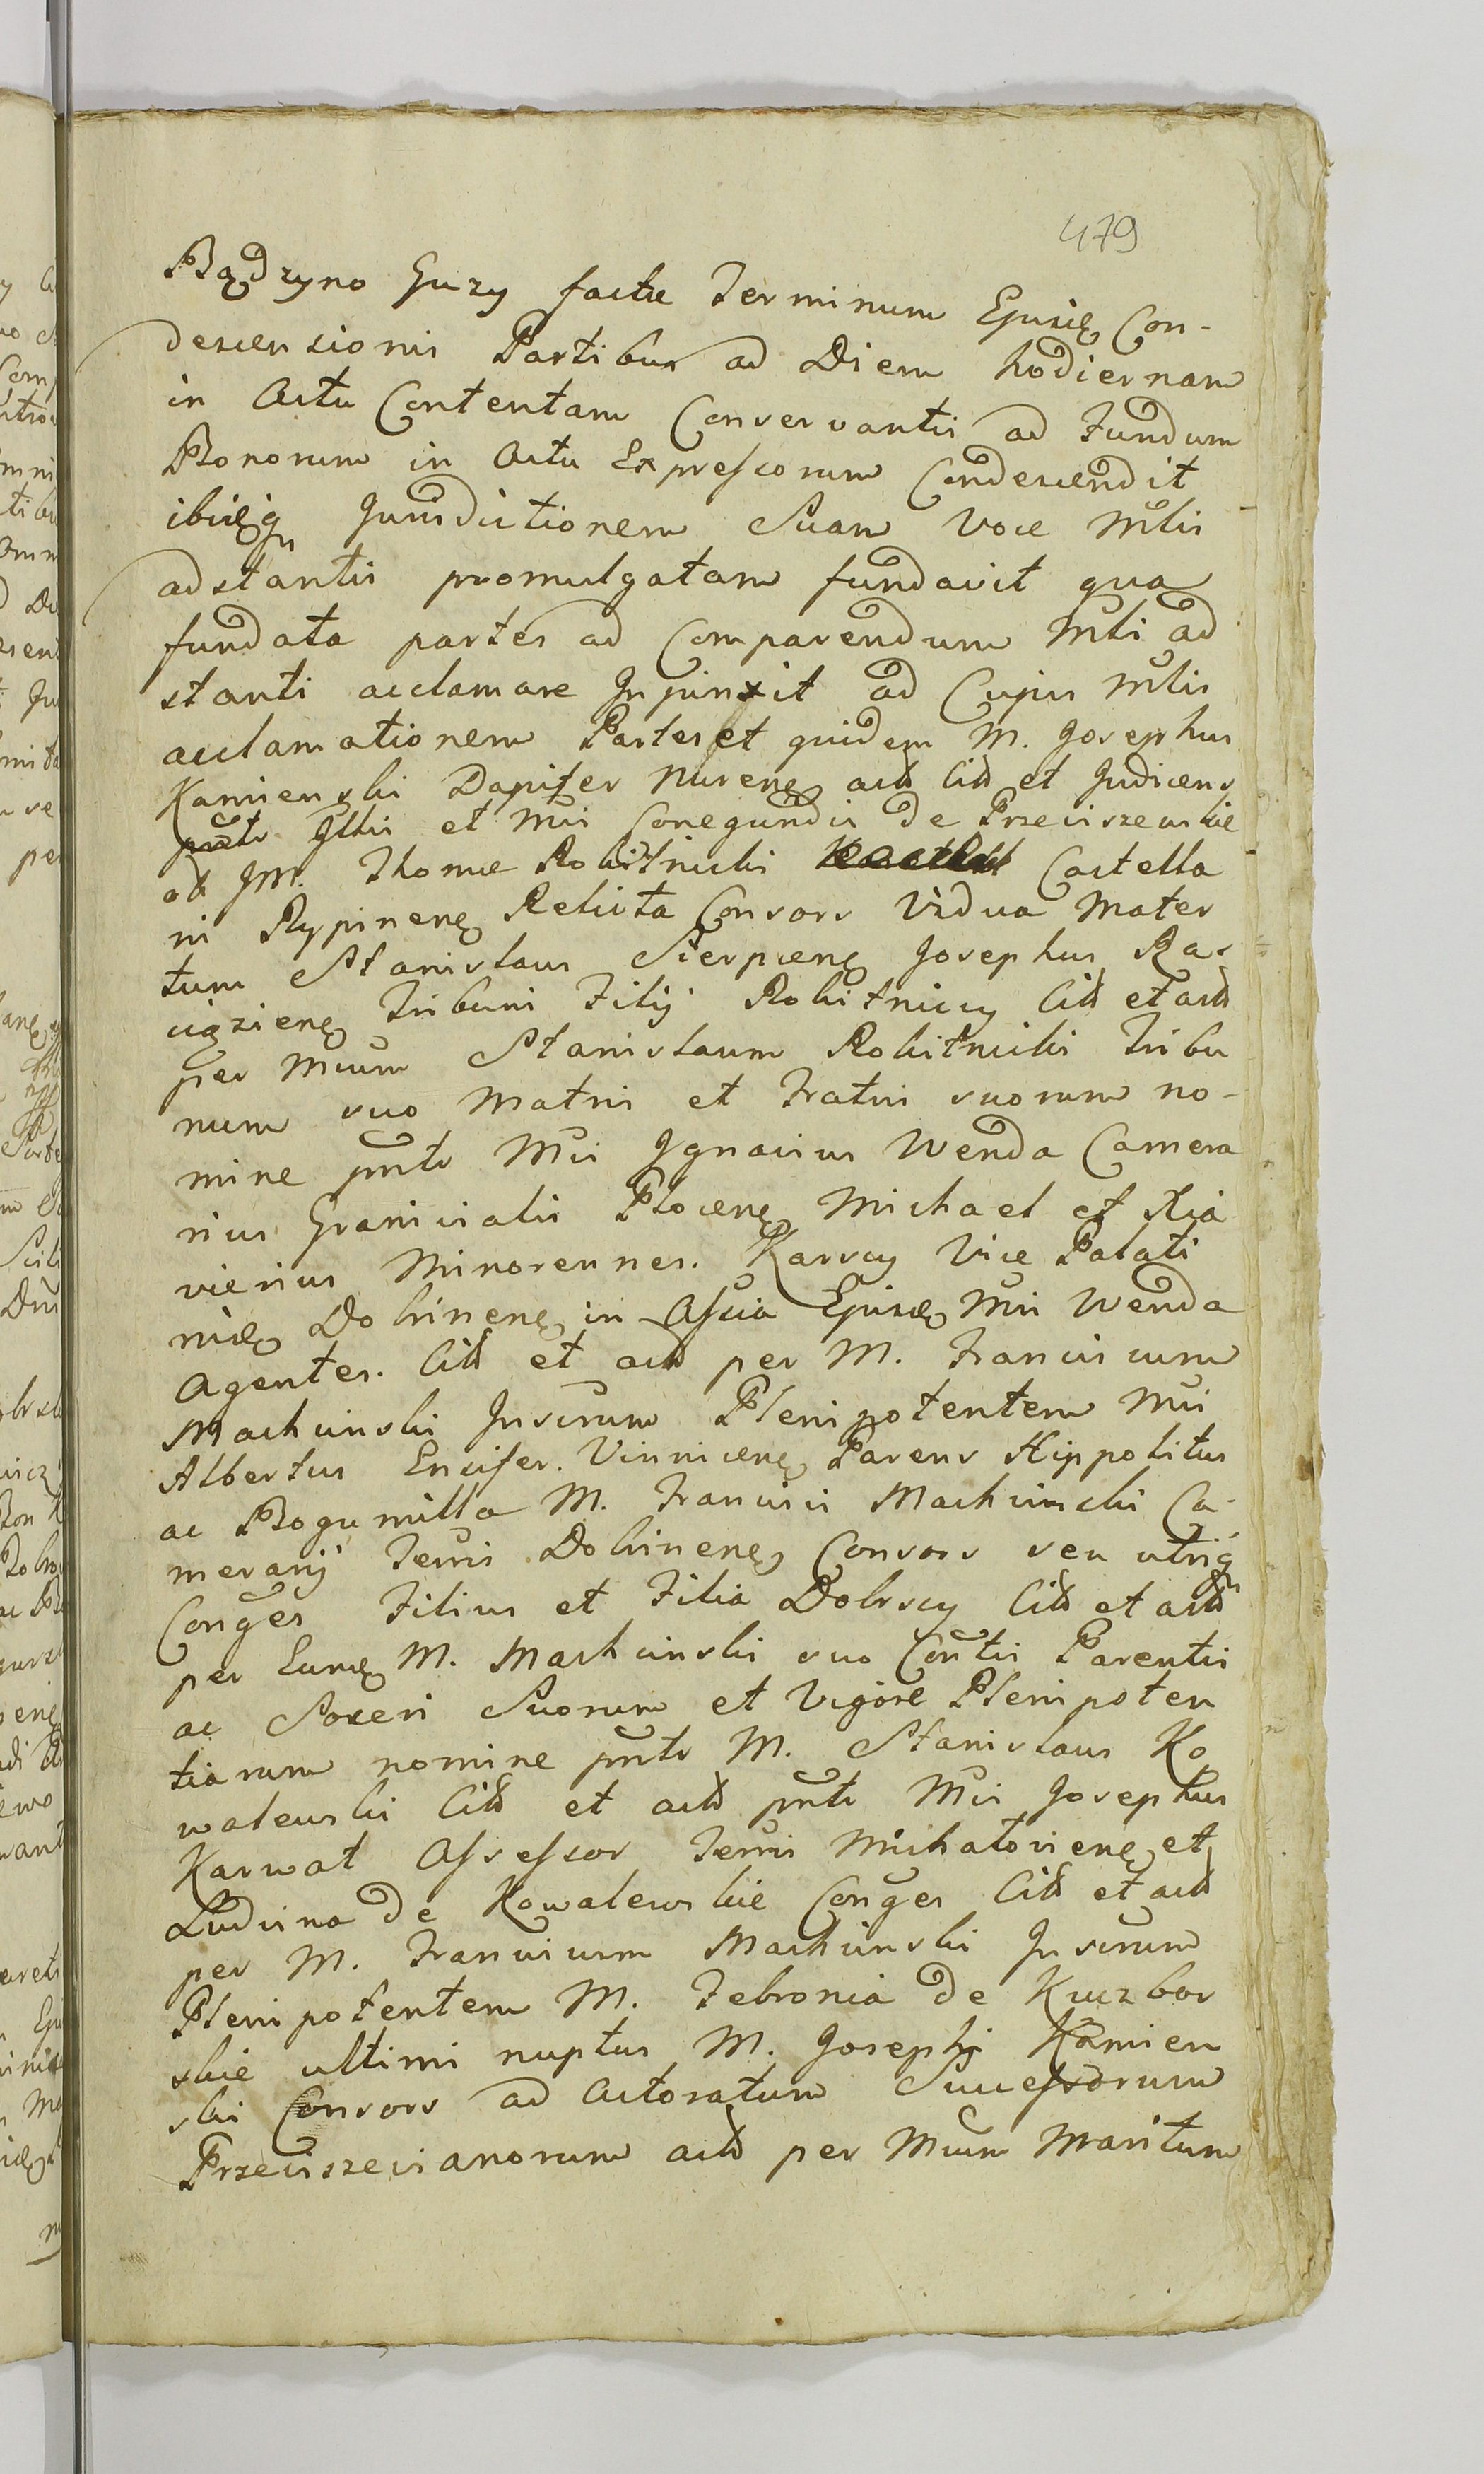 479
Bądzyno Guzy factæ Terminum Ejusq Con-
descensionis Partibus ad Diem hodiernam
in Actu Contentam Conservantis ad Fundum
Bonorum in Actu Expressorum Condescendit
ibiq Jurisdictionem Suam Voce Mlis
adstantis promulgatam fundavit qua
fundata partes ad Comparendum Mli ad
stanti acclamare Injunxit ad Cujus Mlis
acclamationem Partes et quidem M. Josephus
Kamienski Dapifer Nurenę et Judicens
Illis et Mci Conegundis de Przeciszewskie
Thomæ Rokitnicki Castella
ni Rypinenę Relicta Consors Vidua Mater
tum Stanislaus Sierpcenę Josephus Ra-
ciązienę Tribuni Filij Rokitniccy Citt et actt
per Mcum Stanislaum Rokitnicki Tribu
num suo Matris et Fratris suorum no-
mine pnte Mci Ignacius Wenda Camera
rius Granicialis Plocenę Michael et Xa
vierius Minorennes. Karscy Vice Palati
nidę Dobrinenę in Assia Ejusdę Mci Wenda
Agentes. Citt et actt per M. Franciscum
Machcinski Inscrum Plenipotentem Mci
Albertus Ensifer. Vinnicenę Parens Hippolitus
ac Bogumilla M. Francisci Machcinski Ca-
merarij Terris Dobrinenę Consors seu utriq
Conges Filius et Filia Dobrscy Citt et actt
per Eundę M. Machcinski suo Contis Parentis
ac Soceri Suorum et Vigore Plenipoten
tiarum nomine pnte M. Stanislaus Ko
walewski Citt et actt pnte Mci Josephus
Karwat Assessor Terris Michaloviene et
Ludvina de Kowalewskie Conges Citt et actt
per M. Franciscum Machcinski Inscrum
Plenipotentem M. Febronia de Kuczbor
skie ultimi nuptus M. Josephi Kamien
ski Consors ad Actoratum Successorum
Przeciszevianorum actt per Mcum Maritum